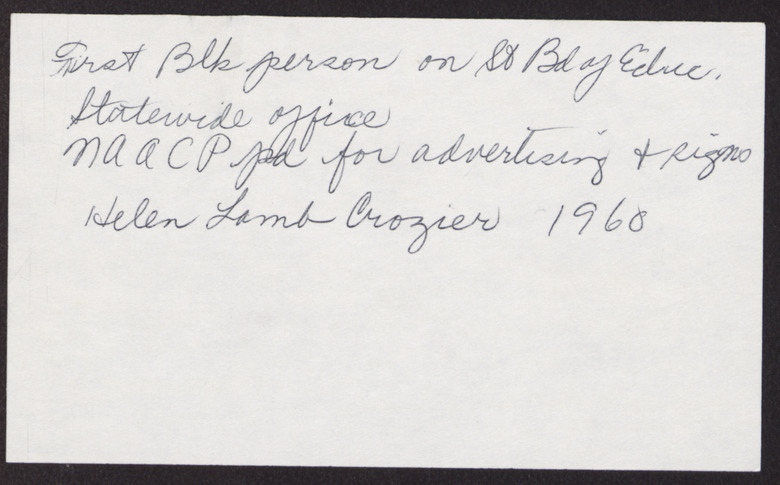 First Blk person on St Bd of Educ.
Statewide office
NAACP pd for advertising & signs
Helen Lamb Crozier 1960